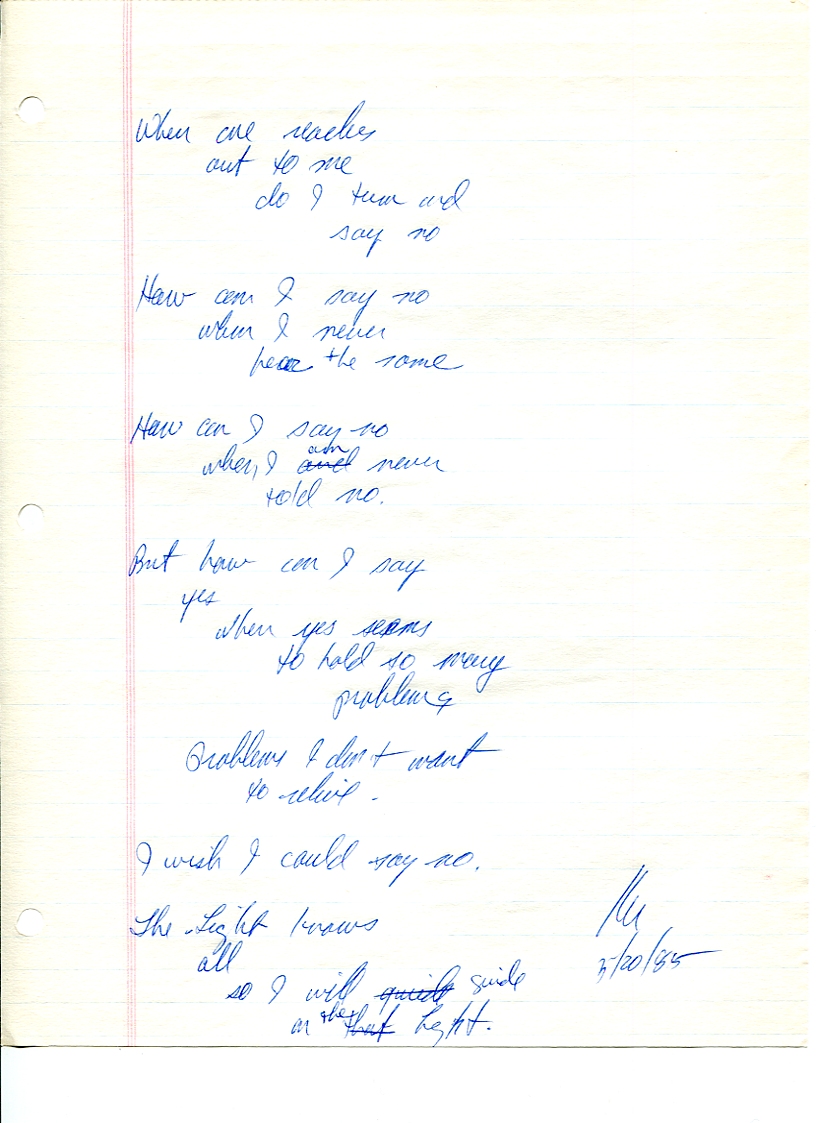 When one reaches
out to me
do I turn and
say no
How can I say no
when I never
hear the same
How can I say no
when, I and am never
told no.
But how can I say
yes
when yes seems
to hold so many
problems
problems I don't want
to relive.
I wish I could say no.
The Light knows
all
so I will quide guide
on that the light.
5/20/85